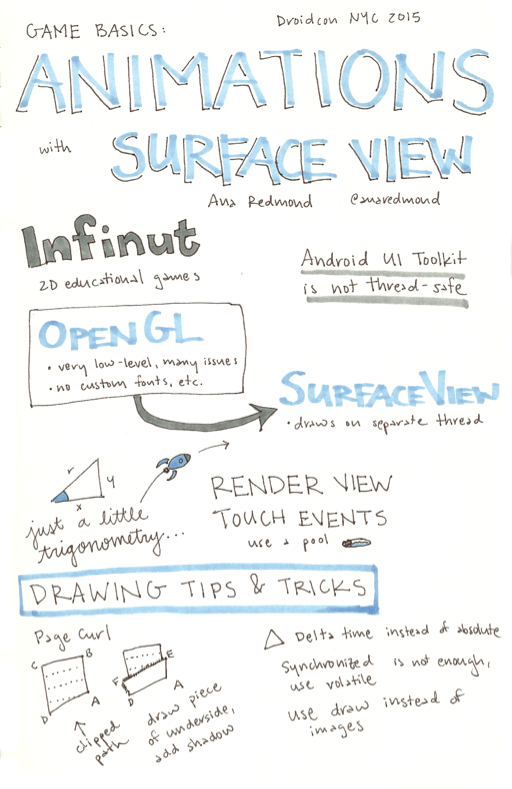 GAME BASICS:
Droidcon NYC 2015
ANIMATIONS
with
SURFACE VIEW
Ana Redmond @anaredmond
Infinut
2D educational games
Android UI Toolkit
is not thread-safe
OPENGL
• very low-level, many issues
• no custom fonts, etc.
SURFACEVIEW
• draws on separate thread
r
y
x
just a little
trigonometry...
RENDER VIEW
TOUCH EVENTS
use a pool
DRAWING TIPS & TRICKS
Page Curl
C B
D A
clipped
path
E
F
D A
draw piece
of underside,
add shadow
△ Delta time instead of absolute
Synchronized is not enough,
use volatile
use draw instead of
images